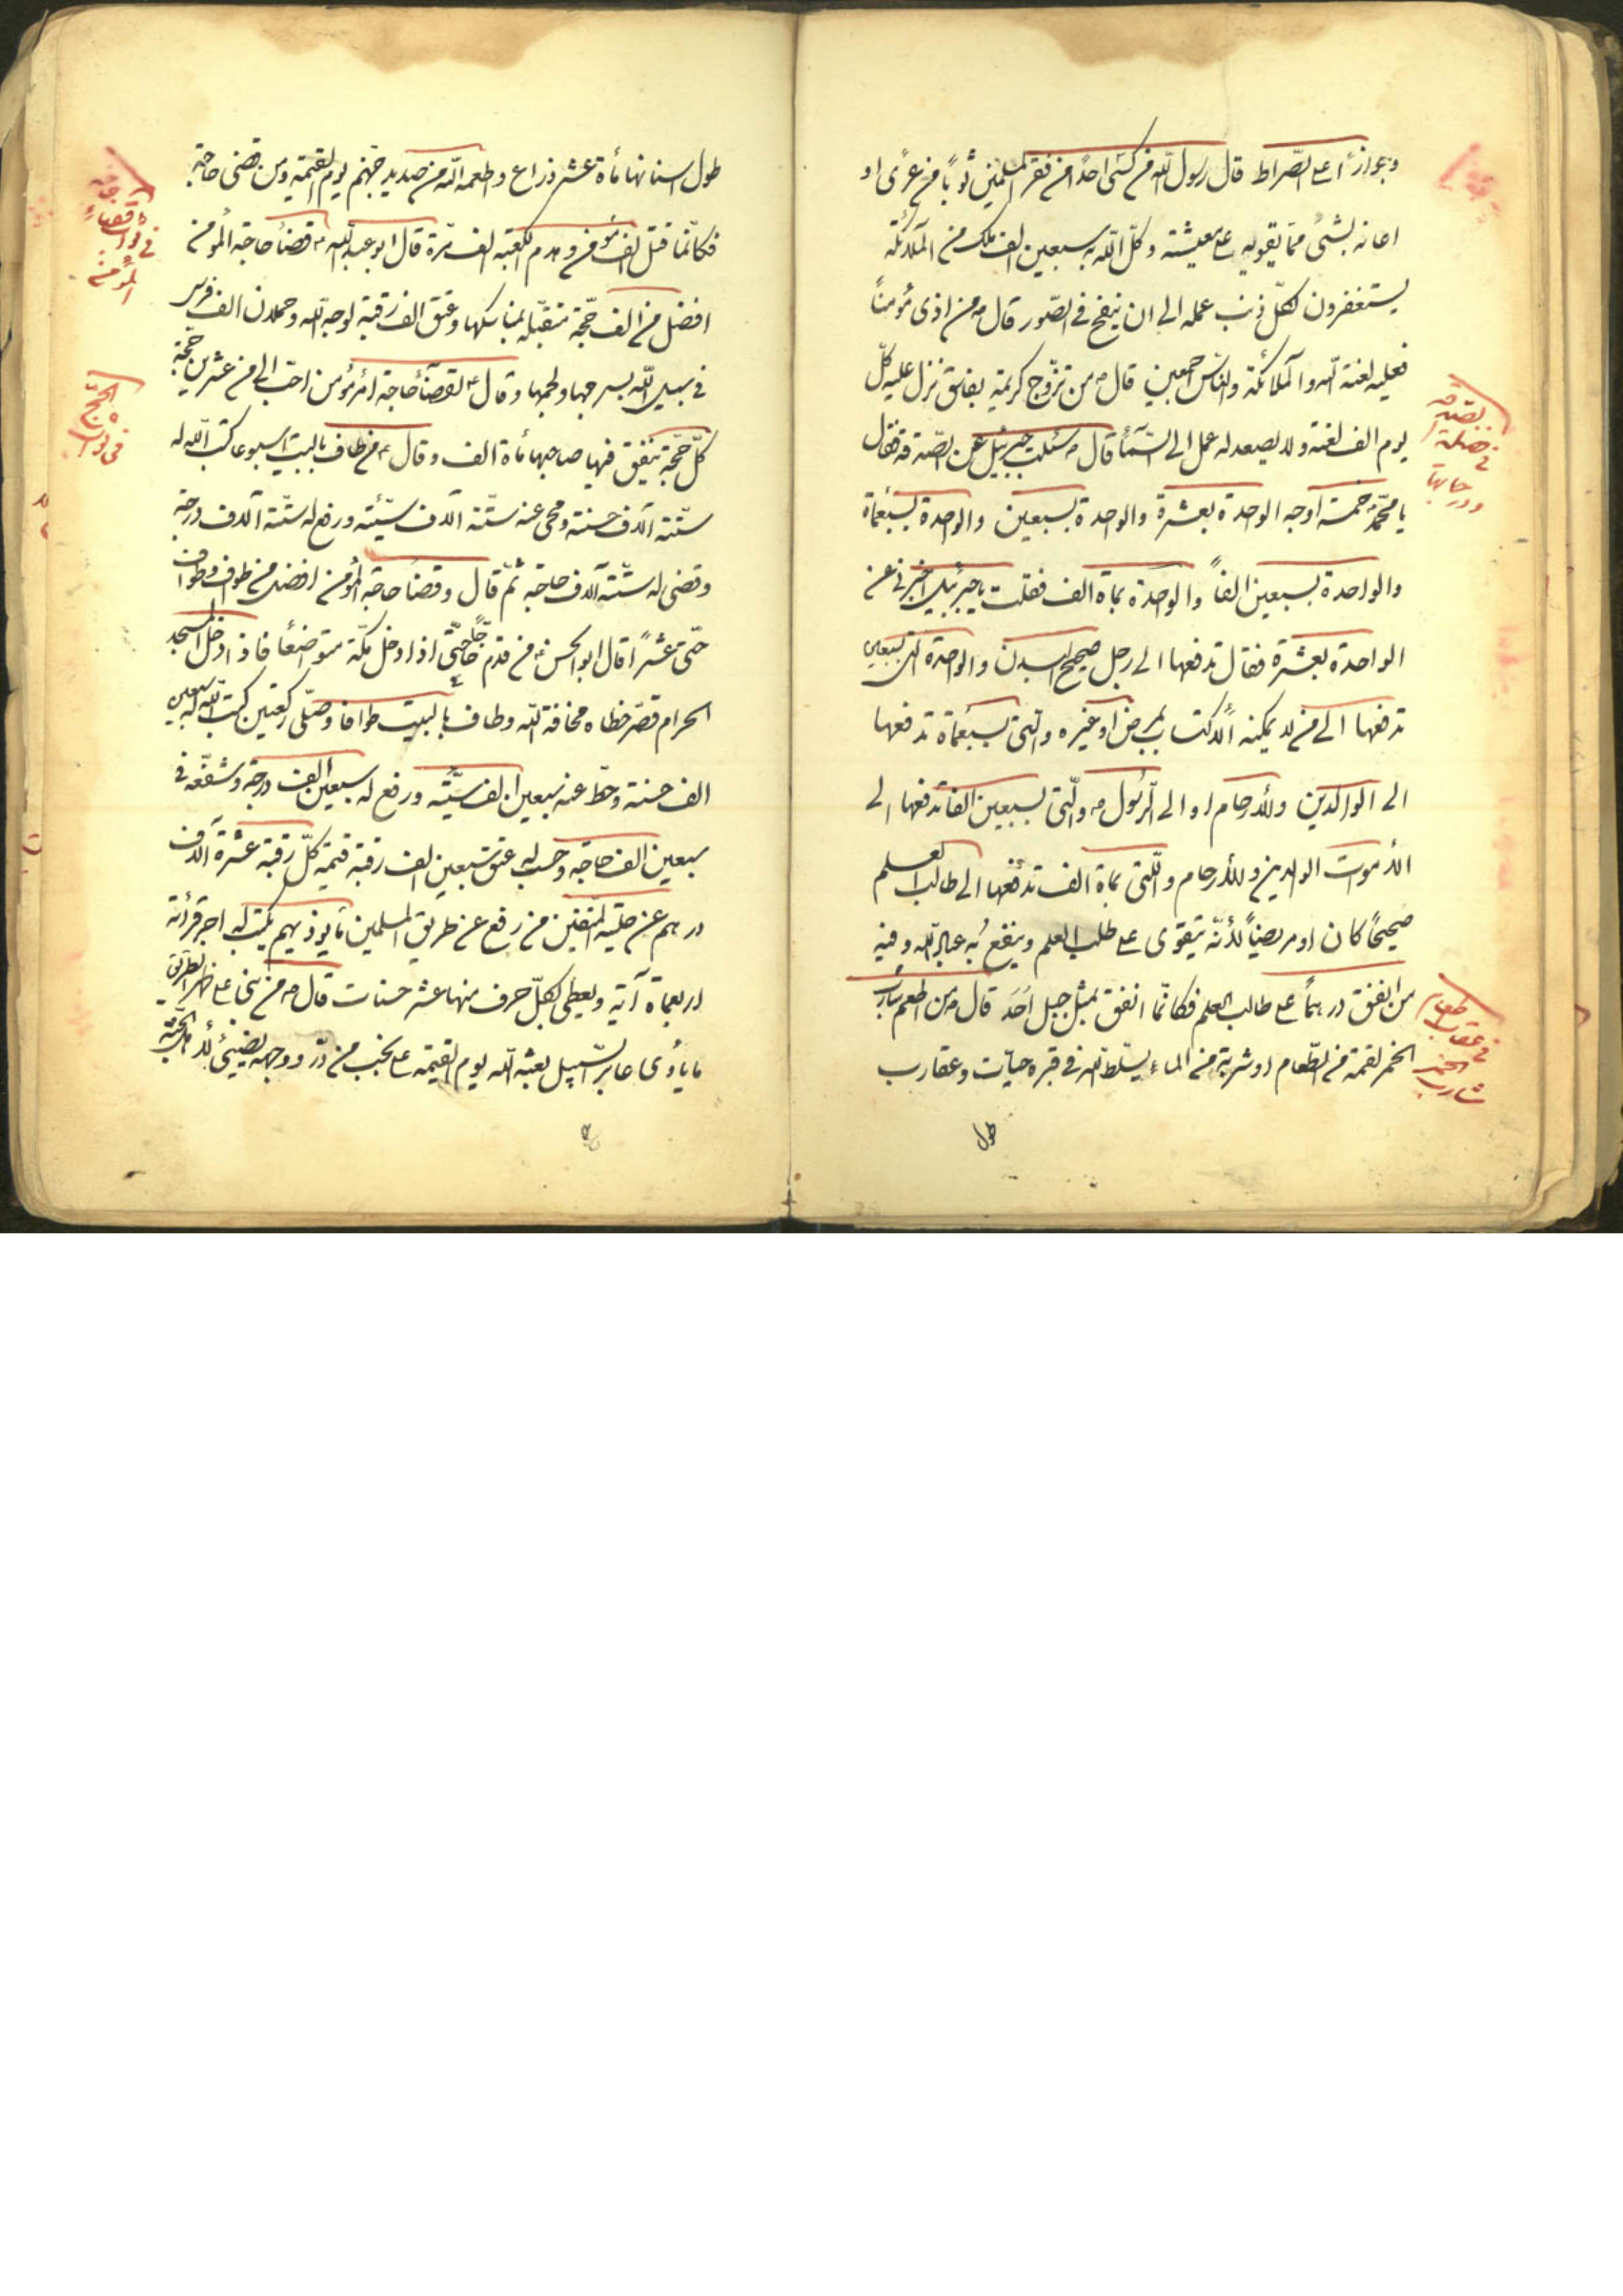 وجوازاً على الصّراط قال رسول الله من كسى احداً من فقراء المسلمين ثوباً من عرًى او
اعانه بشئ ممّا يقويه على معيشته وكّل الله به سبعين الف ملك من الملائكة
يستغفرون لكلّ ذنب عمله الى ان ينفخ فى الصّور قال ص من اذى مؤمناً
فعليه لعنة الله والملائكة والناس اجمعين قال ص من تزوّج كريمته بفاسق نزل عليه كلّ
يوم الف لعنة ولا يصعد له عمل الى السّمآء قال ص سئلت جبرئيل عن الصّدقة فقال
يا محمّد خمسة اوجه الواحدة بعشرة والواحدة بسبعين والواحدة بسبعمأة
والواحدة بسبعين الفاً والواحدة بمأة الف فقلت يا جبرئيل اخبرنى عن
الواحدة بعشرة فقال تدفعها الى رجل صحيح البدن والواحدة التى بسبعين
تدفعها الى من لا يمكنه الاكتساب لمرض او غيره والتى بسبعمأة تدفعها
الى الوالدين وللأرحام او الى الرّسول ص والّتى بسبعين الفا تدفعها الى
الأموات الوالدين وللأرحام والّتى بمأة الف تدفعها الى طالب العلم
صحيحًا كان او مريضاً لأنّه يتقوى على طلب العلم وينفع به عباد الله وفيه
من انفق درهماً على طالب العلم فكانّما انفق بمثل جبل اُحَد قال ص من اطعم شارب
الخمر لقمة من الطّعام او شربة من الماء يسلّط الله فى قبره حيّات وعقارب
طول
فى فضيلة الصّدقة
ودرجاتها
فى عقاب اطعام
شارب الخمر
طول اسنانها مأة عشر ذراع واطعمه الله من صديد جهنّم يوم القيمة ومن قضى حاجة
فكانّما قتل الف مؤمن وهدم الكعبة الف مرّة قال ابو عبد الله ع قضآء حاجة المؤمن
افضل من الف حجّة متقبّلة بمناسكها وعتق الف رقبة لوجه الله وحملان الف فرس
فى سبيل الله بسرجها ولجمها وقال ع لقضآء حاجة امرء مؤمن احبّ الى من عشرين حجّة
كلّ حجّة ينفق فيها صاحبها مأة الف وقال ع من طاف بالبيت اسبوعا كتب الله له
ستّة آلاف حسنة ومحى عنه ستّة آلاف سيّئة ورفع له ستّة آلاف درجة
وقضى له ستّة آلاف حاجة ثمّ قال وقضآء حاجة المؤمن افضل من طواف وطواف
حتّى عشراً قال ابو الحسن ع من قدم حاجّاً حتّى اذا دخل مكّة متواضعًا فاذا دخل المسجد
الحرام قصّر خطاه مخافة الله وطاف بالبيت طوافا وصلّى ركعتين كتب الله له سبعين
الف حسنة وحطّ عنه سبعين الف سيّئة ورفع له سبعين الف درجة وشفّعه فى
سبعين الف حاجة وحسب له عتق سبعين الف رقبة قيمة كلّ رقبة عشرة آلاف
درهم عن حلية المتقين من رفع عن طريق المسلمين ما يوذيهم يكتب له اجر قرائة
اربعمأة آية ويعطى لكلّ حرف منها عشر حسنات قال ص من بنى على ظهر الطريق
ما ياوى عابر السّبيل بعثه الله يوم القيمة على نجيب من درّ ووجهه يضيئ لأهل الجنّة
فى ثواب قضاء حاجة
المؤمن
فى ثواب الحجّ